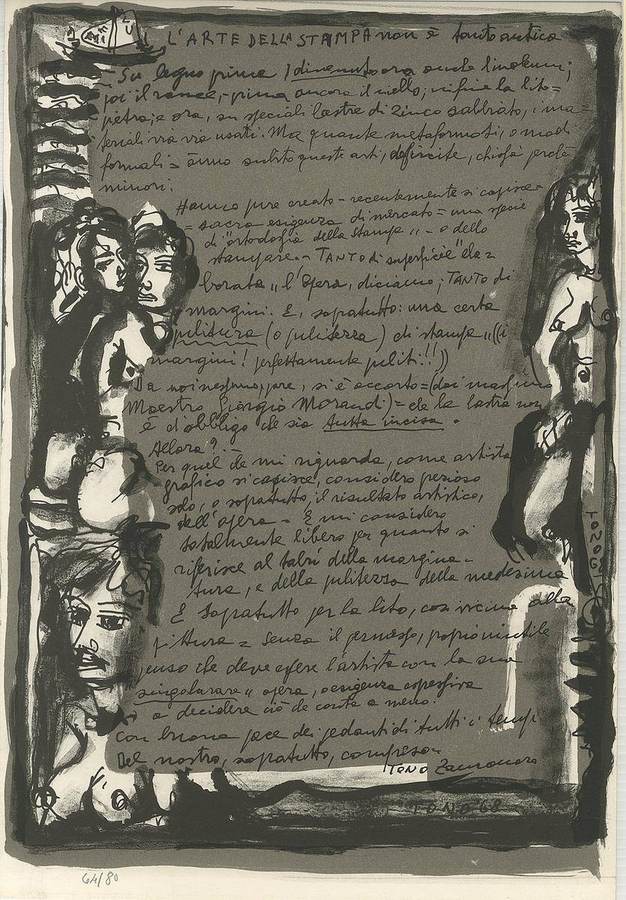 L'ARTE DELLA STAMPA non è tanto antica
- Su legno prima, ora anche linoleum;
poi il rame, - prima ancora il niello; infine la lito=
pietra, e ora, su speciali lastre di zinco sabbiato, i ma=
teriali via via usati. Ma quante metaformosi, o modi
formali = anno subito queste arti, definite, chissà perchè
minori.
Hanno pure creato - recentemente si capisce -
= sacra esigenza di mercato = una specie
di "ortodossia della stampa" - o dello
stampare. - TANTO di superficie "ela=
borata" l'opera, diciamo; TANTO di
margini. E, sopratutto: una certa
pulitura (o pulitezza) di stampa "((i
margini! perfettamente puliti!!))
Da noi nessuno pare, si è accorto = (dai
Maestro Giorgio Morandi) = che la lastra non
è d'obbligo che sia tutta incisa.
Allora? -
Per quel che mi riguarda, come artista
grafico si capisce, considero
solo, o sopratutto, il risultato artistico,
dell'opera - E mi considero
totalmente libero per quanto si
riferisce ai tabù della margina=
tura, e della pulitezza della medesima
E sopratutto per la lito, così vicina alla
pittura = senza il permesso, proprio inutile
penso che deve essere l'artista con la sua
singolarare" opera, o esigenza espressiva
a decidere ciò che conta o meno.
Con buona pace dei pedanti di tutti i tempi
Del nostro, sopratutto, compreso.
TONO Zancanaro
TONO 68
64/80